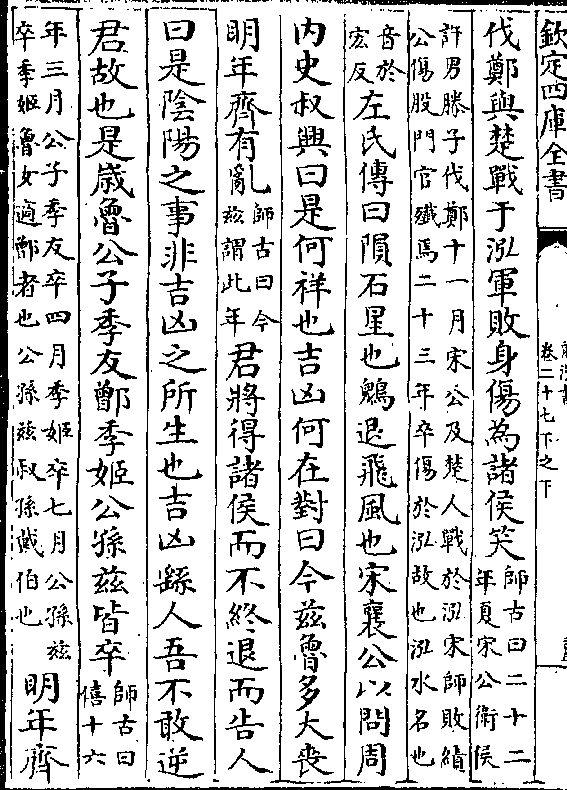 欽定四庫全書
卷二十七下之下
伐鄭與楚戰于泓軍敗身傷為諸侯笑師古曰二十二
年夏宋公衛侯
許男滕子伐鄭十一月宋公及楚人戰於泓宋師敗績
公傷股門官殲焉二十三年卒傷於泓故也泓水名也
音於
宏反左氏傳曰隕石星也鷁退飛風也宋襄公以問周
内史叔興曰是何祥也吉凶何在對曰今兹魯多大喪
明年齊有亂師古曰今
兹謂此年君將得諸侯而不終退而告人
曰是陰陽之事非吉凶之所生也吉凶繇人吾不敢逆
君故也是歳魯公子季友鄫季姬公孫兹皆卒師古曰
僖十六
年三月公子季友卒四月季姬卒七月公孫兹
卒季姬魯女適鄫者也公孫兹叔孫戴伯也明年齊